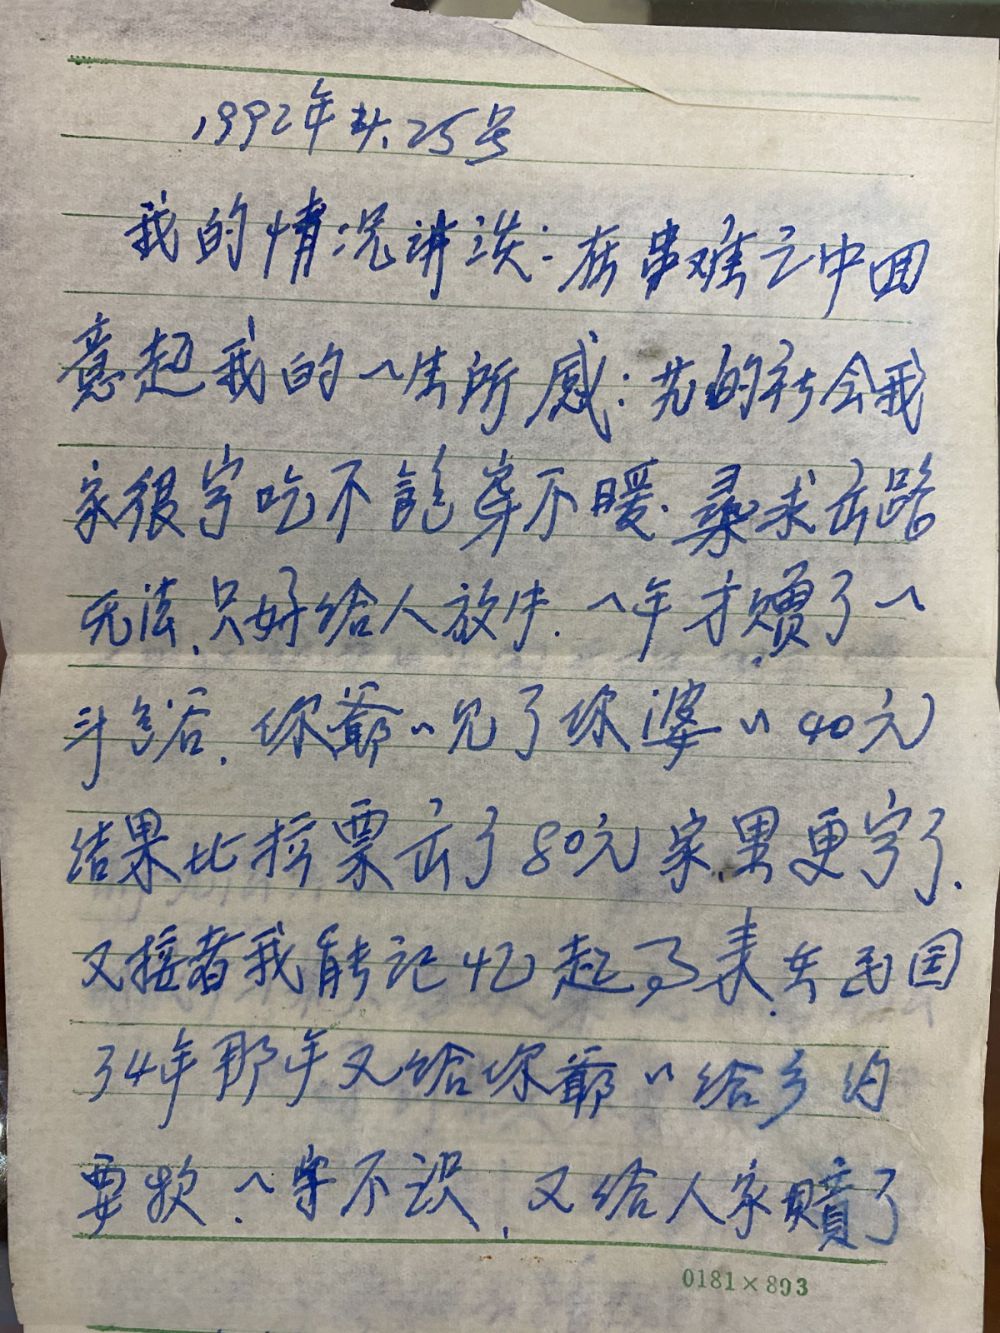 1992年4.25号
我的情况讲谈：在患难之中回
意起我的一生所感：先的社会我
家很穷吃不饱穿不暖.寻求出路
无法,只好给人放牛.一年才赚了一
斗谷.你爷〃 了你婆〃40元
结果比 票出了80元家里更穷了.
又接着我能记忆起了来.在民国
34年那年又给你爷〃给乡约
要款.一字不识,又给人家赔了
0181×893